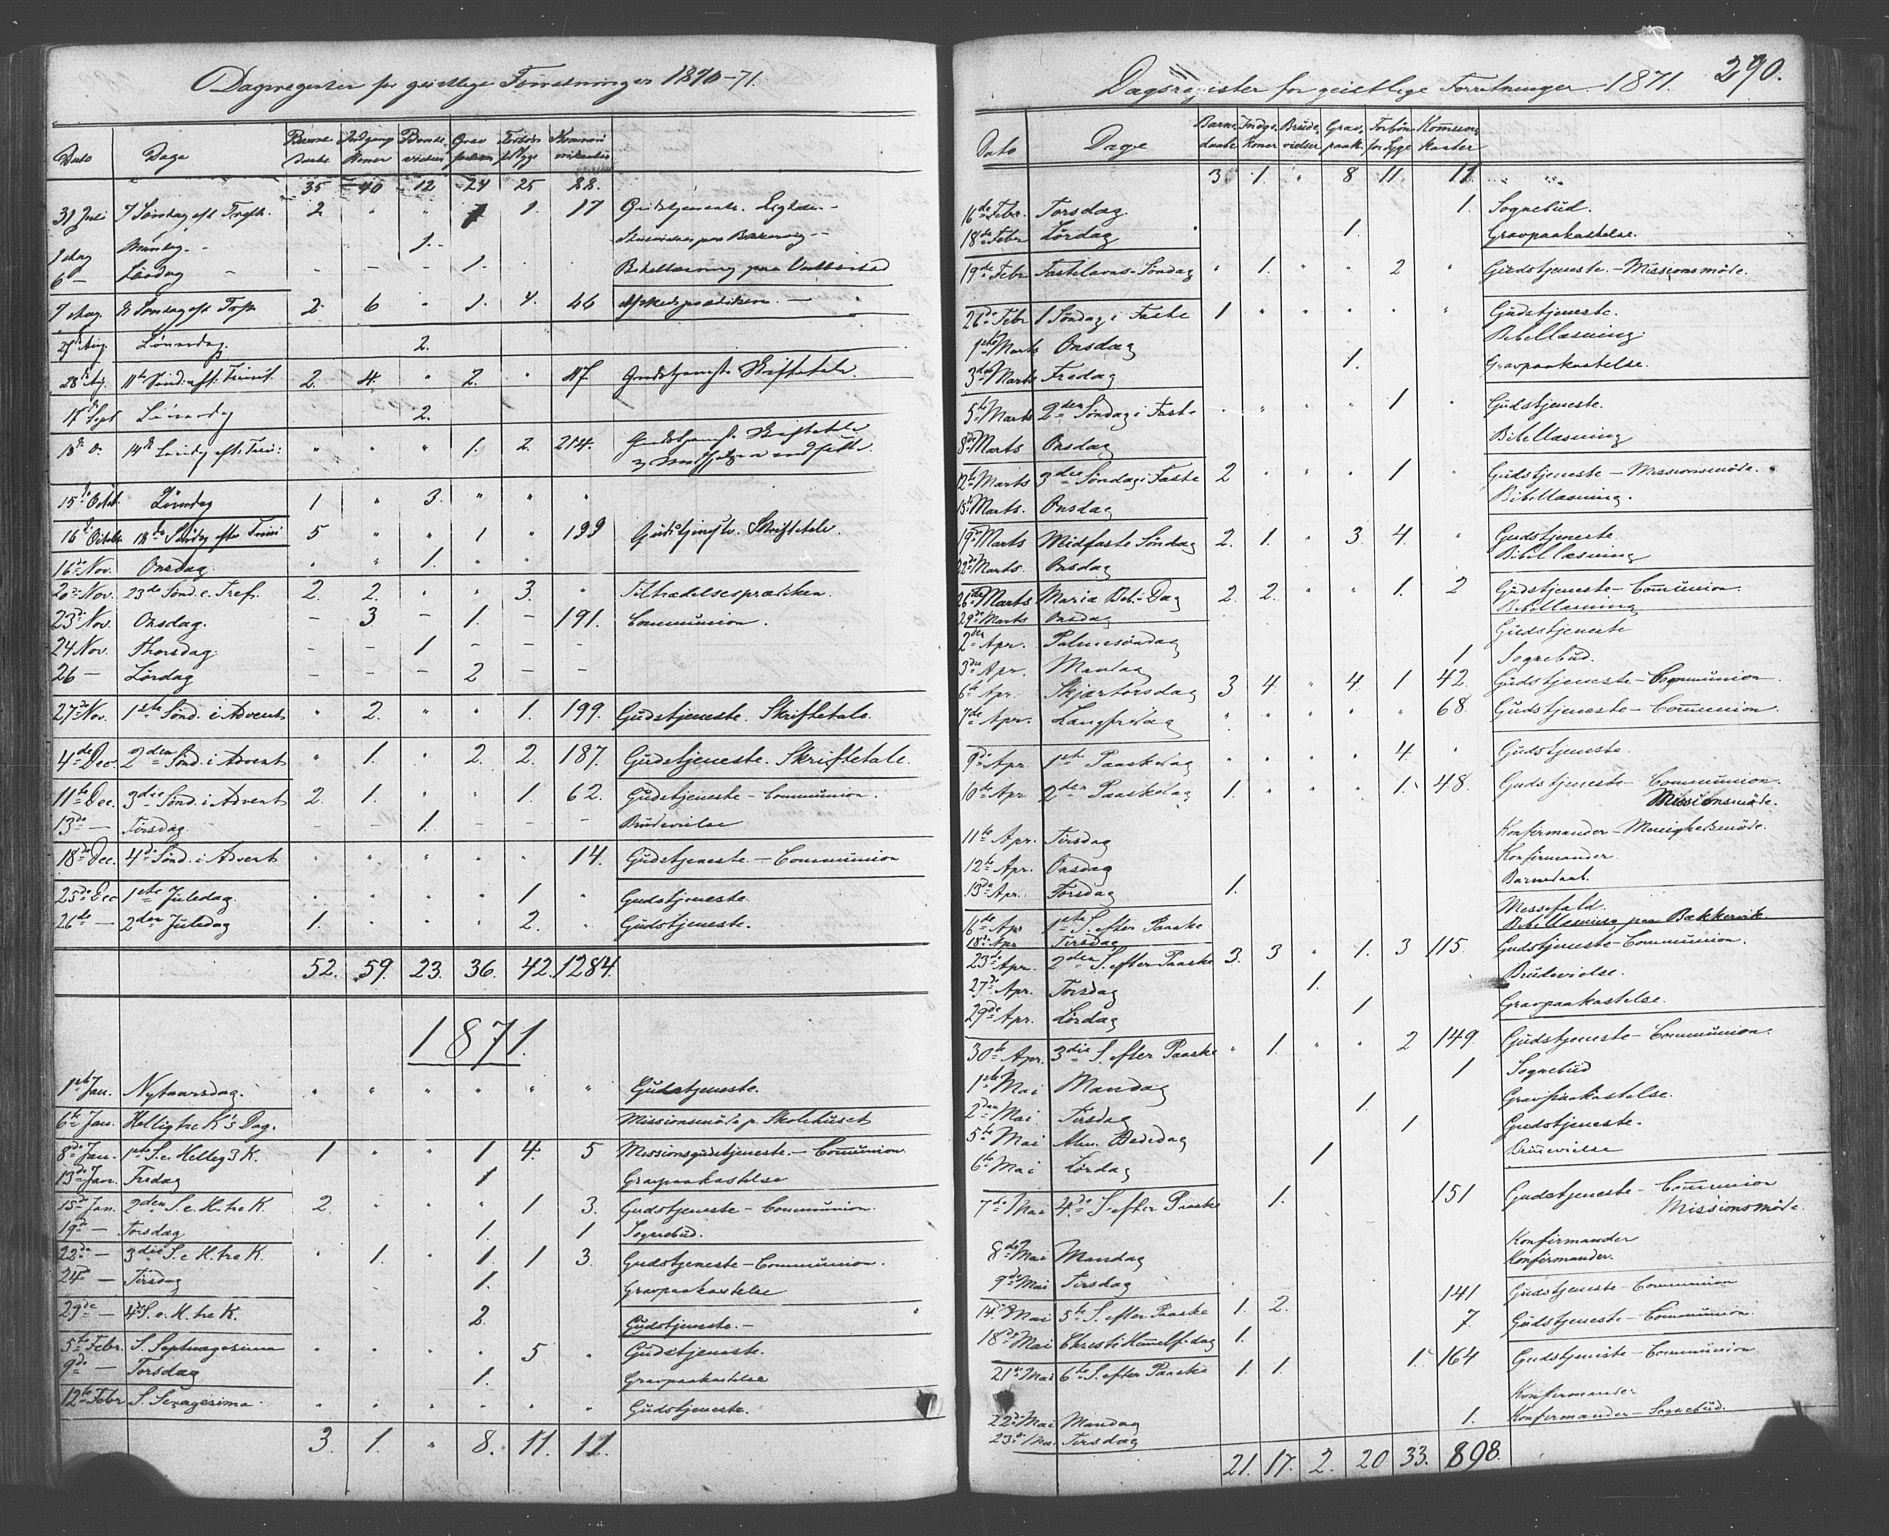 Dagregister for geistlige Forretninger 1870-71.
Dato Dage Barne daab Indgang Koner Brude vielser Grav Forbøn f. Syge Kommuni
35 40 12 24 25 88.
31 Juli 7 Søndag eft. Trefk. 2. " " 1. 17 Gudstjeneste.
1 Aug Mandag. - 1.
6 - Lördag - - - - 1. Bibellæsning paa
7 Aug. 8 Søndag eft Tref. 2. 6 " 1. 4. 46 Afskedsprædiken. -
27 Aug. Löverdag. 2.
28 Ag. 11te Sønd. eft. Trinit. 2. 4. " 2. " 117. Gudstjeneste Skriftetale
17 Sept Löverdag 2.
18 D. 14de Søndag eft. Trin: " " " 1. 2. 214. Gudstjeneste Skriftetale
15 Octbr. Löverdag 1 " 3. " " "
16 Octobr 18de Søndag efter Trini 5 " " 1 " 199 Gudstjeneste. Skriftetale.
16de Nov. Onsdag. " " 1. " "
20de Nov. 23de Sønd. e. Tref. 2. 2. " " 3. " Tiltrædelsesprædiken.
23de Nov. Onsdag. - 3 - 1. - 191. Communion.
24 Nov. Thorsdag. - - 1 - - -
26 - Lördag - - - 2 - -
27de Nov. 1ste Sönd. i Advent " 2. " " 1. 199. Gudstjeneste. Skriftetale.
4de Dec. 2den Sönd. i Advent " 1. " 2. 2. 187. Gudstjeneste. Skriftetale.
11te Dec. 3die Sönd. i Advent 2. 1. " " 1. 62. Gudstjeneste - Communion.
13de - Tirsdag - - 1. - - - Brudevielse
18de Dec. 4de Sönd. i Advent " " " " " 14. Gudstjeneste - Communion
25de Dec 1ste Juledag. " " " " 1 " Gudstjeneste.
26de - 2den Juledag 1. " " " 2. " Gudstjeneste.
52. 59. 23. 36. 42. 1284.
1871.
1ste Jan. Nytaarsdag. " " " " " " Gudstjeneste.
6te Jan. Helligtre K's Dag. Missionsmöde p. Skolehuset
8de Jan. 1ste S. e. Hellig 3 K. 1 " " 1 4. 5 Missionsgudstjeneste. - Communion.
13de Jan. Fredag 1 Gravpaakastelse
15de Jan. 2den S. e. H. tre K. 2. " " " 1 3. Gudstjeneste - Communion.
19de - Torsdag 1. 1 Sognebud.
22de - 3die S. e H. tre K. " 1. " 1 1 3. Gudstjeneste - Communion.
24de - Tirsdag 1. Gravpaakastelse
29de - 4de S. e. H. tre K. 2. Gudstjeneste. -
5te Febr. S. Septuagesima " " " " 5 " Gudstjeneste.
9de - Torsdag 1. Gravpaakastelse
12te Febr S. Sexagesima. " " " " " " Gudstjeneste.
3. 1. " 8. 11. 11.
290.
Dagsregister for geistlige Forretninger 1871.
Dato Dage Barne daabe Indgs. Koner Brude vielser Grav paak. Forbön for Syge Kommuni kanter
3. 1. " 8 11. 11.
16de Febr. Torsdag. 1. Sognebud.
18de Febr Lördag 1. Gravpaakastelse.
19de Febr Fastelavns-Söndag " 1. " " 2 " Gudstjeneste. - Missionsmöde.
26de Febr 1 Söndag i Faste 1 " " " " " Gudstjeneste.
1ste Marts Onsdag Bibellæsning.
3die Marts Fredag 1. Gravpaakastelse.
5te Marts 2den Söndag i Faste " " " " 1 " Gudstjeneste.
8de Marts Onsdag Bibellæsning
12te Marts 3die Söndag i Faste 2 " " " 1 " Gudstjeneste - Missionsmöde.
15te Marts. Onsdag Bibellæsning.
19de Marts Midfaste Söndag 2. 1. " 3 4. " Gudstjeneste
22de Marts. Onsdag Bibellæsning
25de Marts Mariæ Beb. Dag 2. 2. " " 1. 2 Gudstjeneste - Comunion.
29de Marts Onsdag Bibellæsning
2den Apr. Palmesöndag Gudstjeneste
3die Apr. Mandag 1 Sognebud.
6te Apr. Skjærtorsdag 3 4. " 4. 1 42. Gudstjeneste - Communion.
7de Apr. Langfredag " " " " " 68. Gudstjeneste - Communion.
9de Apr 1ste Paaskedag " " " " 4 " Gudstjeneste.
10de Apr 2den Paaskedag 1. " " " 1. 48. Gudstjeneste - Communion.
Missionsmöde.
11te Apr. Tirsdag Konfirmander - Menighedsmöde.
12te Apr. Onsdag Konfirmander.
13de Apr. Torsdag 1. Barnedaab.
16de Apr 1ste S. efter Paaske Messefald.
18de Apr Tirsdag Bibellæsning paa Bækkervik.
23de Apr. 2den S. efter Paaske 3. 3 " 1. 3 115. Gudstjeneste - Communion.
27de Apr. Torsdag 1. Brudevielse.
29de Apr. Lördag 1 Gravpaakastelse.
30te Apr. 3die S. efter Paaske " 1. " " 2 149. Gudstjeneste - Communion.
1ste Mai Mandag 1 Sognebud
2den Mai Tirsdag 1. Gravpaakastelse.
5te Mai Alm. Bededag 1 Gudstjeneste.
6te Mai Lördag 1 Brudevielse
7de Mai 4de S efter Paaske 1. 151 Gudstjeneste - Communion
Missionsmöde.
8de Mai Mandag Konfirmander
9de Mai Tirsdag Konfirmander.
14de Mai 5te S. efter Paaske 1. 2. 141 Gudstjeneste - Communion
18de Mai Christi Himmelf. dag 1. 7. Gudstjeneste - Communion.
21de Mai 6te S. efter Paaske 1. 1. 1. 164 Gudstjeneste - Communion
22de Mai Mandag Konfirmander
23de Mai Tirsdag 1. Konfirmander - Sognebud.
21. 17. 2. 20 33. 898.